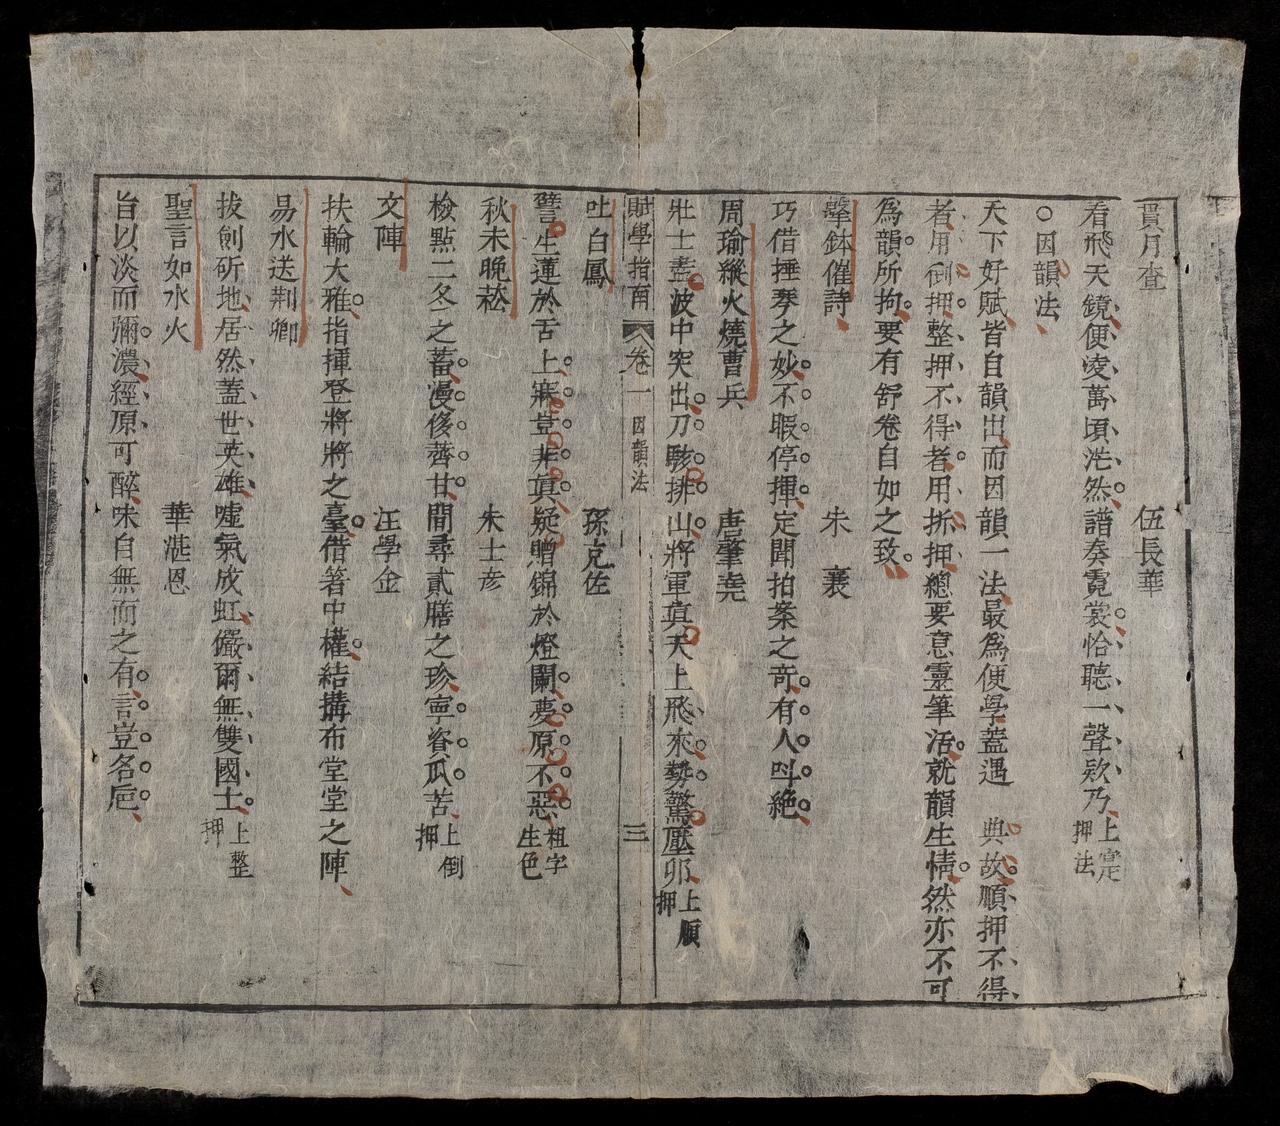 貫月查　伍長華
看飛天鏡便凌萬頃茫然譜奏霓裳恰聽一聲欵乃上定押法
○因韻法
天下好賦皆自韻出而因韻一法最為便學蓋遇　典故順押不得
者用倒押整押不得者用拆押總要意靈筆活就韻生情然亦不可
為韻所拘要有舒卷自如之致
擊鉢催詩　朱襄
巧借捶琴之妙不暇停揮定聞拍案之奇有人呌絶
周瑜縱火燒曹兵　唐肇堯
壯士盡波中突出刀駭排山將軍真天上飛來勢驚壓卵上順押
賦學指南　卷一　因韻法　三
吐白鳳　孫克佐
讐生蓮於舌上寐豈非真疑贈錦於燈闌夢原不惡粗字生色
秋末晚菘　朱士彥
檢點二冬之蓄漫侈薺甘間尋貳膳之珍寧資瓜苦上倒押
文陣　汪學企
扶輪大雅指揮登將將之臺借箸中權結搆布堂堂之陣
易水送荆卿
拔劍斫地居然蓋世英雄噓氣成虹儼爾無雙國士上整押
聖言如水火　華湛恩
旨以淡而彌濃經原可醉味自無而之有言豈名巵